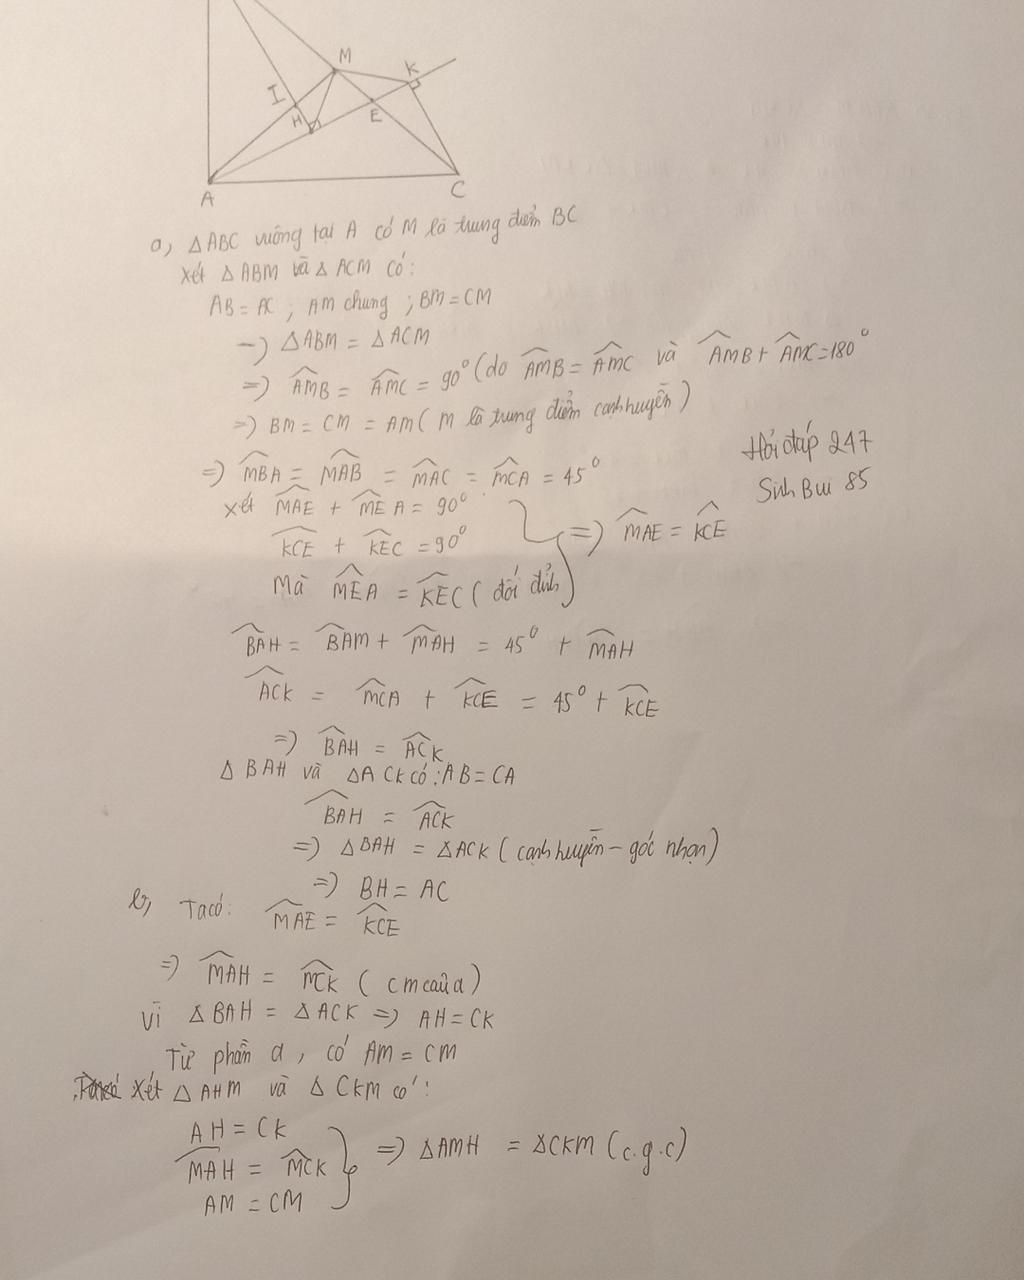 M
K
I
H
E
A
C
a, ΔABC vuông tại A có M là trung điểm BC
Xét ΔABM và ΔACM có:
AB = AC ; AM chung ; BM = CM
-) ΔABM = ΔACM
=) \widehat{AMB} = \widehat{AMC} = 90° (do \widehat{AMB} = \widehat{AMC} và \widehat{AMB} + \widehat{AMC} = 180°
=) BM = CM = AM ( M là trung điểm cạnh huyền )
=) \widehat{MBA} = \widehat{MAB} = \widehat{MAC} = \widehat{MCA} = 45°
Hỏi đáp 247
Sinh Bui 85
xét \widehat{MAE} + \widehat{MEA} = 90°
\widehat{KCE} + \widehat{KEC} = 90°
=) \widehat{MAE} = \widehat{KCE}
Mà \widehat{MEA} = \widehat{KEC} ( đối đỉnh )
\widehat{BAH} = \widehat{BAM} + \widehat{MAH} = 45° + \widehat{MAH}
\widehat{ACK} = \widehat{MCA} + \widehat{KCE} = 45° + \widehat{KCE}
=) \widehat{BAH} = \widehat{ACK}
ΔBAH và ΔACK có : AB = CA
\widehat{BAH} = \widehat{ACK}
=) ΔBAH = ΔACK ( cạnh huyền - góc nhọn )
=) BH = AC
b, Ta có: \widehat{MAE} = \widehat{KCE}
=) \widehat{MAH} = \widehat{MCK} ( cm câu a )
Vì ΔBAH = ΔACK =) AH = CK
Từ phần a , có AM = CM
Xét ΔAHM và ΔCKM có :
AH = CK
\widehat{MAH} = \widehat{MCK} } =) ΔAMH = ΔCKM (c.g.c)
AM = CM